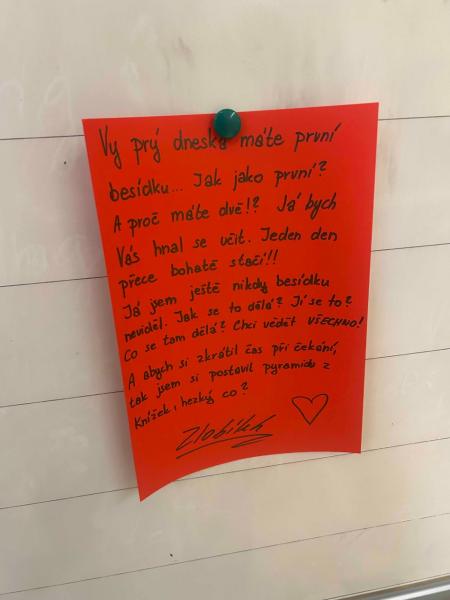 Vy prý dneska máte první
besídku... Jak jako první?
A proč máte dvě!? Já bych
Vás hnal se učit. Jeden den
přece bohatě stačí!!
Já jsem ještě nikdy besídku
neviděl. Jak se to dělá? Jí se to?
Co se tam dělá? Chci vědět VŠECHNO!
A abych si zkrátil čas při čekání,
tak jsem si postavil pyramidu z
knížek, hezký co?